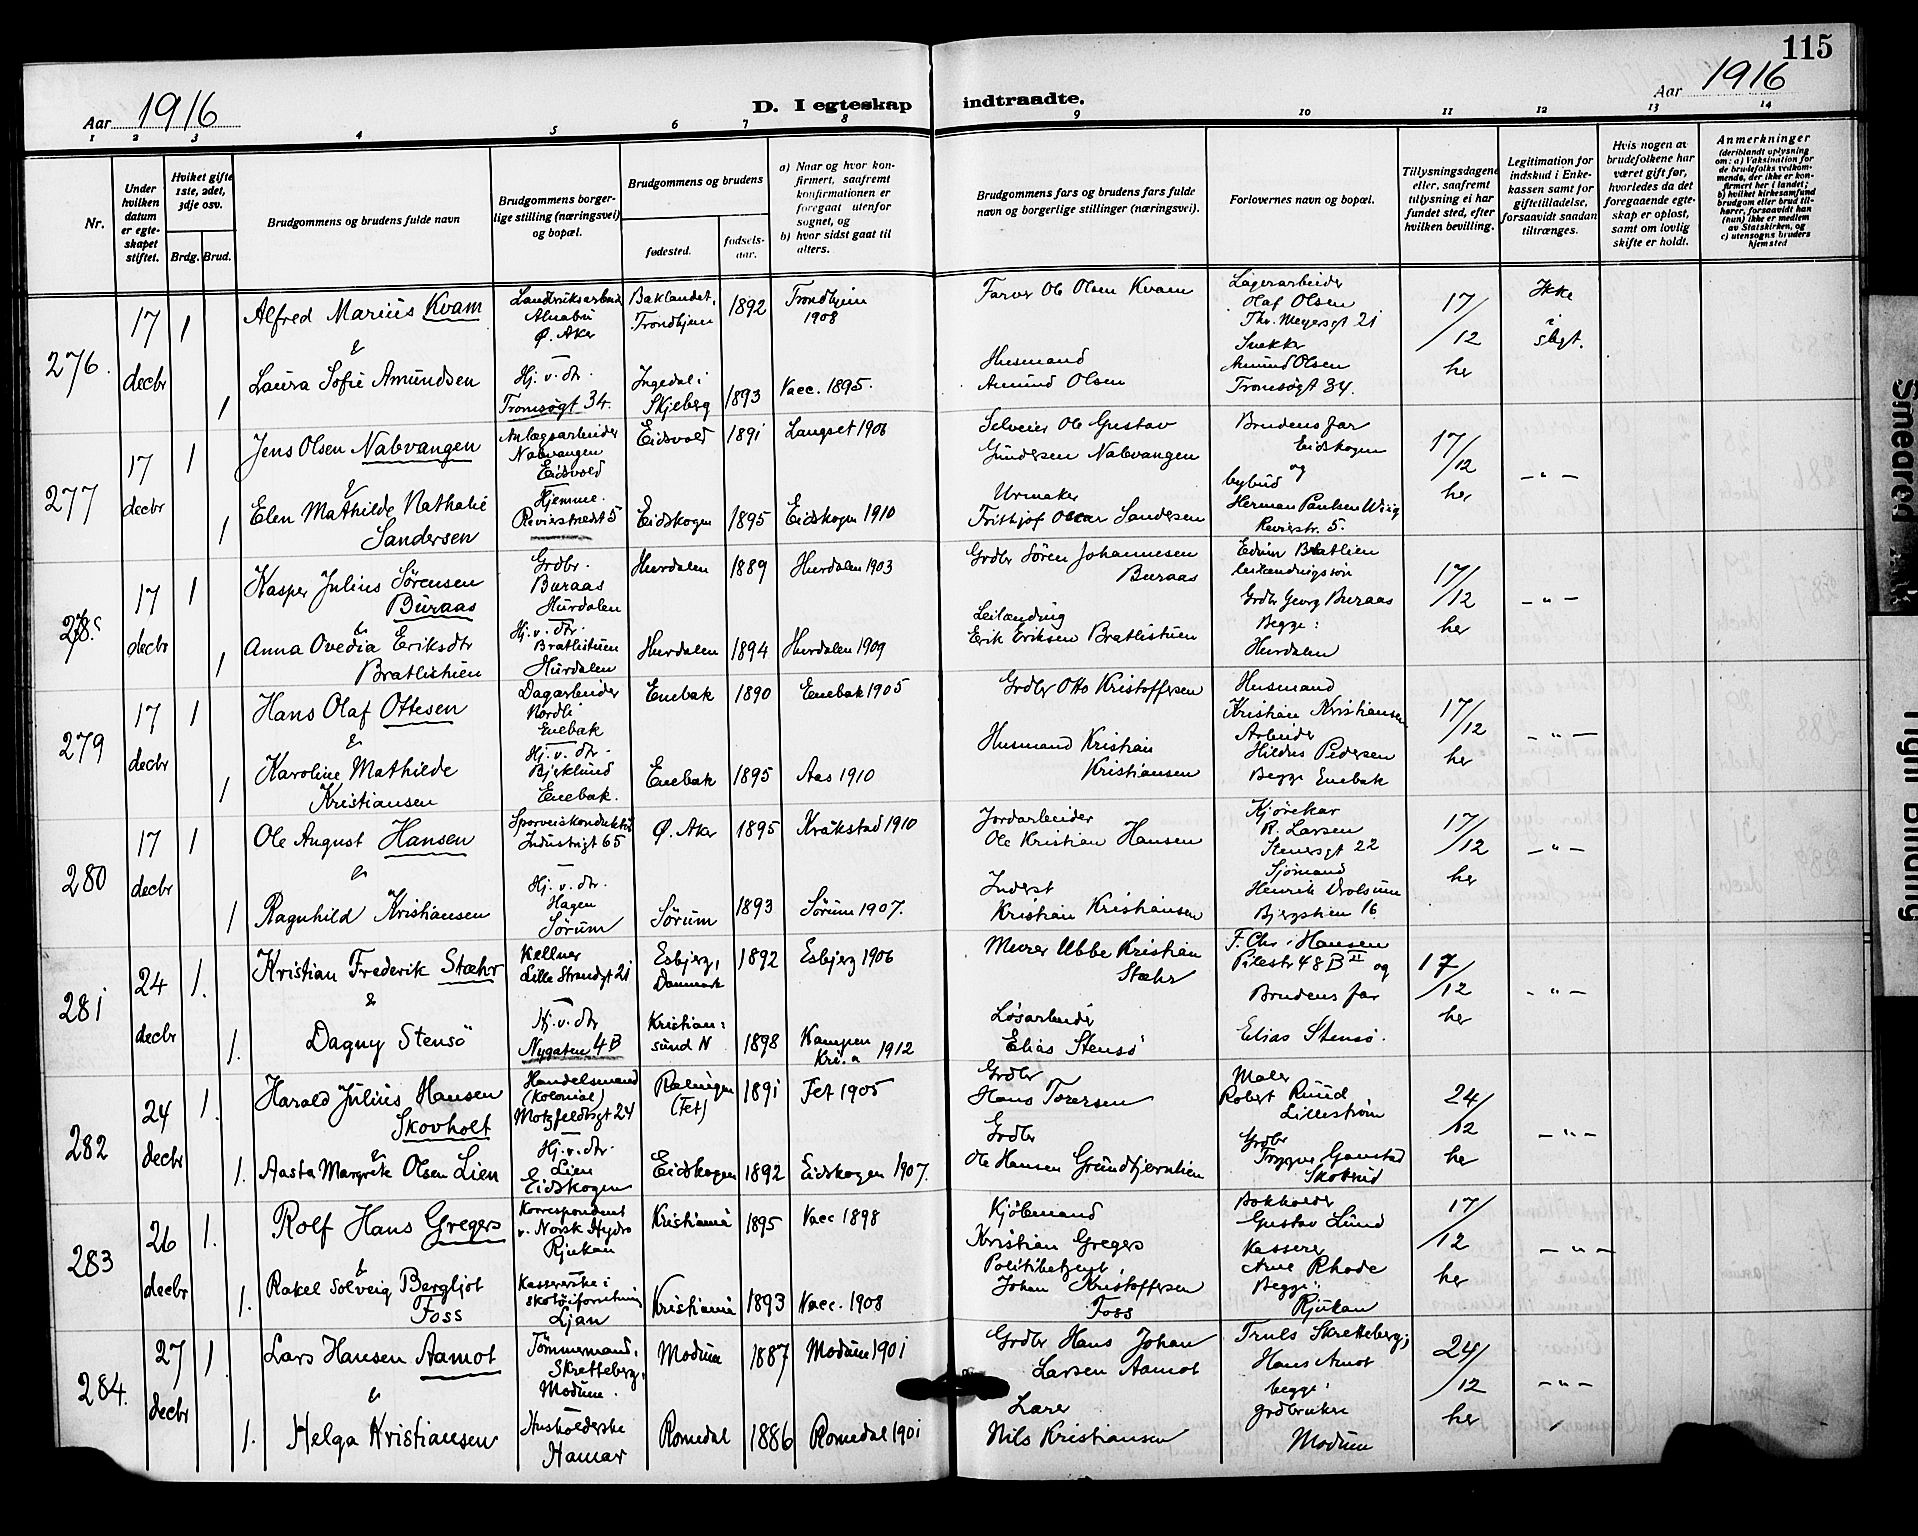 115
Aar 1916
D. I egteskap indtraadte.
Aar 1916
1 2 3 4 5 6 7 8 9 10 11 12 13 14
Nr.
Under hvilken datum er egteskapet stiftet.
Hviket gifte 1ste, 2det, 3dje osv.
Brdg. Brud.
Brudgommens og brudens fulde navn
Brudgommens borgerlige stilling (næringsvei) og bopæl.
Brudgommens og brudens
fødested.
fødselsaar.
a) Naar og hvor konfirmert, saafremt konfirmationen er foregaat utenfor sognet, og
b) hvor sidst gaat til alters.
Brudgommens fars og brudens fars fulde navn og borgerlige stillinger (næringsvei).
Forlovernes navn og bopæl.
Tillysningsdagene eller, saafremt tillysning ei har fundet sted, efter hvilken bevilling.
Legitimation for indskud i Enkekassen samt for giftetilladelse, forsaavidt saadan tiltrænges.
Hvis nogen av brudefolkene har været gift før, hvorledes da det foregaaende egteskap er opløst, samt om lovlig skifte er holdt.
Anmerkninger
(deriblandt oplysning om: a) Vaksination for de brudefolks vedkommende, der ikke er konfirmert her i landet; b) hvilket kirkesamfund brudgom eller brud tilhører, forsaavidt han (hun) ikke er medlem av Statskirken, og c) utensogns bruders hjemsted
276.
17 decbr
1
Alfred Marius Kvam
Landbruksarbeid Alnabu Ø. Aker
Baklandet, Trondhjem
1892
Trondhjem 1908
Farver Ole Olsen Kvam
Lagerarbeider Olaf Olsen Thv. Meyersgt 21
17/12 her
Ikke i slegt.
&
1
Laura Sofie Amundsen
Hj. v. dtr. Tromsøgt 34.
Ingedal i Skjeberg
1893
Vacc. 1895.
Husmand Amund Olsen
Snekker Amund Olsen Tromsøgt 34.
277
17 decbr
1
Jens Olsen Nabvangen
Anlægsarbeider Nabvangen Eidsvold
Eidsvold
1891
Langset 1906
Selveier Ole Gustav Gundersen Nabvangen
Brudens far Eidskogen og
17/12 her
- " -
&
1
Elen Mathilde Nathalie Sandersen
Hjemme. Revierstredet 5
Eidskogen
1895
Eidskogen 1910
Urmaker Frithjof Oscar Sandersen
bybud Herman Paulsen Wiig Revierstr. 5.
278.
17 decbr
1
Kasper Julius Sørensen Buraas
Grdbr. Buraas Hurdalen
Hurdalen
1889
Hurdalen 1903
Grdbr Søren Johannesen Buraas
Edvin Bratlien leilændingssøn
17/12 her
- " -
&
1
Anna Ovedia Eriksdtr Bratlistuen
Hj. v. dtr. Bratlistuen Hurdalen
Hurdalen
1894
Hurdalen 1909
Leilænding Erik Eriksen Bratlistuen
Grdbr Georg Buraas Begge: Hurdalen
279
17 decbr
1
Hans Olaf Ottesen
Dagarbeider Nordli Enebak
Enebak
1890
Enebak 1905
Grdbr Otto Kristoffersen
Husmand Kristian Kristiansen
17/12 her
- " -
&
1
Karoline Mathilde Kristiansen
Hj. v. dtr. Bjerklund Enebak.
Enebak
1895
Aas 1910
Husmand Kristian Kristiansen
Arbeider Hildus Pedersen Begge Enebak
280
17 decbr
1
Ole August Hansen
Sporveiskonduktør Industrigt 65
Ø. Aker
1895
Kråkstad 1910
Jordarbeider Ole Kristian Hansen
Kjørekar R. Larsen Stenersgt 22
17/12 her
- " -
&
1
Ragnhild Kristiansen
Hj. v. dtr. Hagen Sørum
Sørum
1893
Sørum 1907.
Inderst Kristian Kristiansen
Sjømand Henrik Bjergstien 16
281
24 decbr
1.
Kristian Frederik Stæhr
Kellner Lille Strandgt 21
Esbjerg, Danmark
1892
Esbjerg 1906
Murer Ubbe Kristian Stæhr
F. Chr. Hansen Pilestr 48 B II og
17/12 her
- " -
&
1.
Dagny Stensö
Hj. v. dtr Nygaten 4B
Kristiansund N
1898
Kampen Kr.a 1912
Løsarbeider Elias Stensö
Brudens far Elias Stensö.
282
24 decbr
1.
Harald Julius Hansen Skovholt
Handelsmand (Kolonial) Motzfeldtsgt 24
Rælingen (Fet)
1891
Fet 1905
Grdbr Hans Torersen
Maler Robert Ruud Lillestrøm
24/12 her
- " -
&
1.
Aasta Margrete Olsen Lien
Hj. v. dtr. Lien Eidskogen
Eidskogen
1892
Eidskogen 1907.
Grdbr Ole Hansen Grundtjernlien
Grdbr Trygve Skotrud
283
26 decbr
1.
Rolf Hans Gregers
Korrespondent v. Norsk Hydro Rjukan
Kristiania
1895
Vacc 1898
Kjøbmand Kristian Gregers
Bokholder Gustav Lund
17/12 her
- " -
&
1.
Rakel Solveig Bergljot Foss
Kassererske i skotøiforretning Ljan
Kristiania
1893
Vacc. 1908
Politibetjent Johan Kristoffersen Foss
Kasserer Arne Rhode Begge: Rjukan
284.
27 decbr
1.
Lars Hansen Aamot
Tømmermand, Skretteberg, Modum.
Modum
1887
Modum 1901
Grdbr Hans Johan Larsen Aamot
Truls Skretteberg, Hans Amot
24/12 her
- " -
&
1.
Helga Kristiansen
Husholderske Hamar
Romedal
1886
Romedal 1901
Lærer Nils Kristiansen
begge: grdbrukere Modum
Smeared
Tight Binding